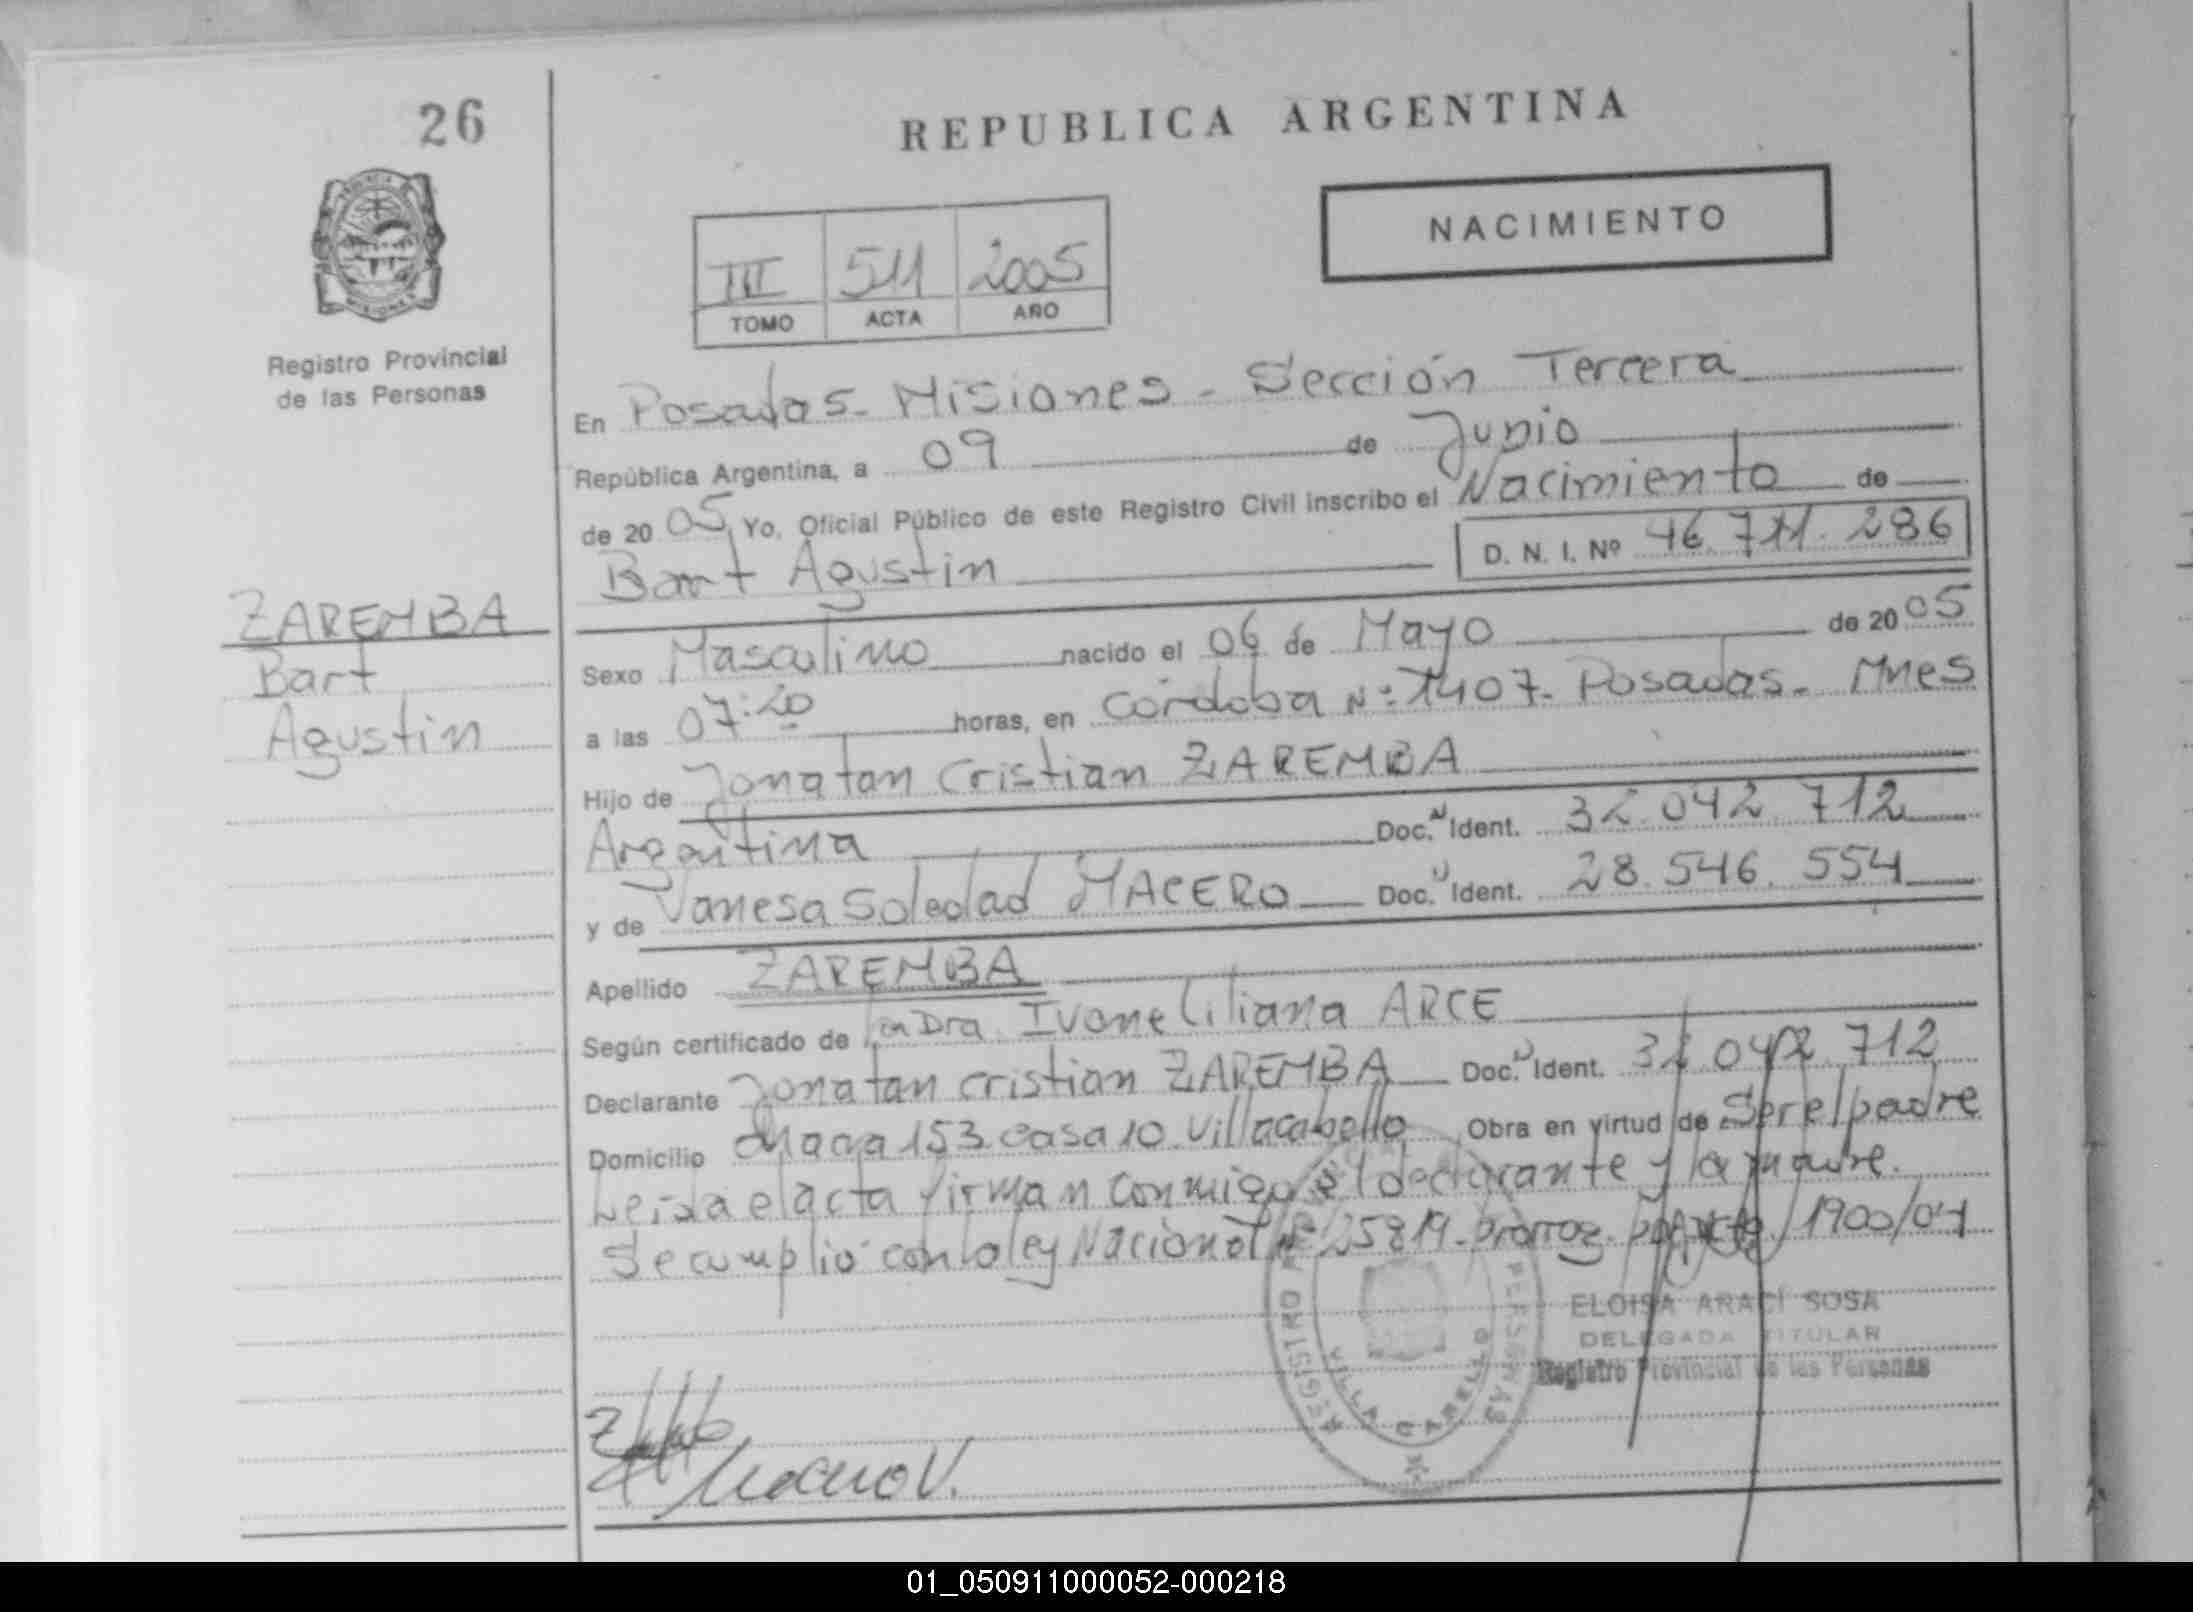 26
REPUBLICA ARGENTINA
NACIMIENTO
III 511 2005
TOMO ACTA AÑO
Registro Provincial
de las Personas
En Posadas - Misiones - Sección Tercera
República Argentina, a 09 de Junio
de 20 05 Yo, Oficial Público de este Registro Civil inscribo el Nacimiento de
Bart Agustin D. N. I. Nº 46.711.286
ZAREMBA
Bart
Agustin
Sexo Masculino nacido el 06 de Mayo de 20 05
a las 07:20 horas, en Córdoba Nº 1407 - Posadas - Mnes
Hijo de Jonatan Cristian ZAREMBA
Argentina Doc. N Ident. 32.042.712
y de Vanesa Soledad MACERO Doc. N Ident. 28.546.554
Apellido ZAREMBA
Según certificado de la Dra. Ivone Liliana ARCE
Declarante Jonatan Cristian ZAREMBA Doc. N Ident. 32.042.712
Domicilio chacra 153 casa 10 Villa cabello Obra en virtud de Ser el padre
Leida el acta firman conmigo el declarante y la madre.
Se cumplió con la ley Nacional Nº 25819 - prorrog. 1900/04
ELOISA ARACI SOSA
DELEGADA TITULAR
Registro Provincial de las Personas
REGISTRO PERSONAS
VILLA CABELLO
Macero V.
01_050911000052-000218